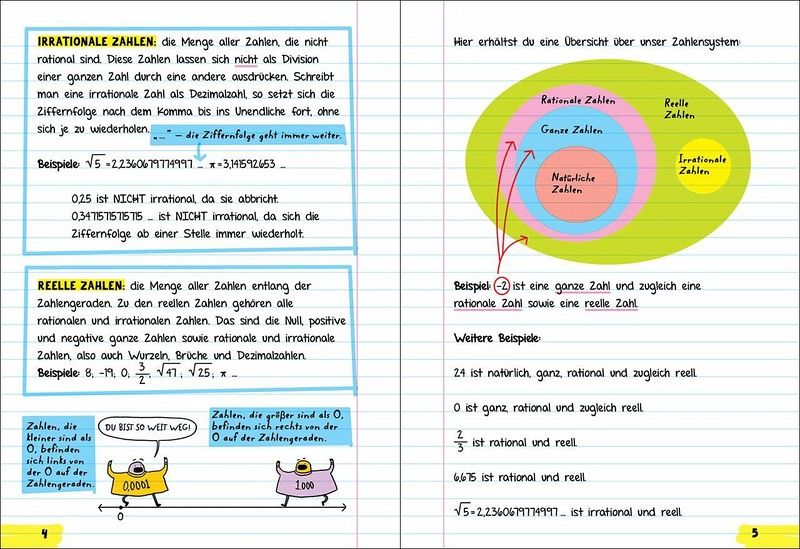 IRRATIONALE ZAHLEN: die Menge aller Zahlen, die nicht
rational sind. Diese Zahlen lassen sich nicht als Division
einer ganzen Zahl durch eine andere ausdrücken. Schreibt
man eine irrationale Zahl als Dezimalzahl, so setzt sich die
Ziffernfolge nach dem Komma bis ins Unendliche fort, ohne
sich je zu wiederholen.
„…“ – die Ziffernfolge geht immer weiter.
Beispiele: √5 = 2,2360679774997 … π = 3,141592653 …
0,25 ist NICHT irrational, da sie abbricht.
0,3471571571575 … ist NICHT irrational, da sich die
Ziffernfolge ab einer Stelle immer wiederholt.
REELLE ZAHLEN: die Menge aller Zahlen entlang der
Zahlengeraden. Zu den reellen Zahlen gehören alle
rationalen und irrationalen Zahlen. Das sind die Null, positive
und negative ganze Zahlen sowie rationale und irrationale
Zahlen, also auch Wurzeln, Brüche und Dezimalzahlen.
Beispiele: 8, -19, 0, 3/2, √47, √25, π …
Zahlen, die
kleiner sind als
0, befinden
sich links von
der 0 auf der
Zahlengeraden.
DU BIST SO WEIT WEG!
Zahlen, die größer sind als 0,
befinden sich rechts von der
0 auf der Zahlengeraden.
0,0001
1.000
0
4
Hier erhältst du eine Übersicht über unser Zahlensystem:
Rationale Zahlen
Ganze Zahlen
Natürliche
Zahlen
Reelle
Zahlen
Irrationale
Zahlen
Beispiel: -2 ist eine ganze Zahl und zugleich eine
rationale Zahl sowie eine reelle Zahl.
Weitere Beispiele:
24 ist natürlich, ganz, rational und zugleich reell.
0 ist ganz, rational und zugleich reell.
2/3 ist rational und reell.
6,675 ist rational und reell.
√5 = 2,2360679774997 … ist irrational und reell.
5